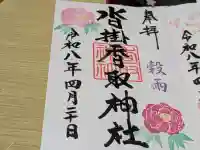 奉拝
穀雨
沓掛香取神社
令和八年四月二十日